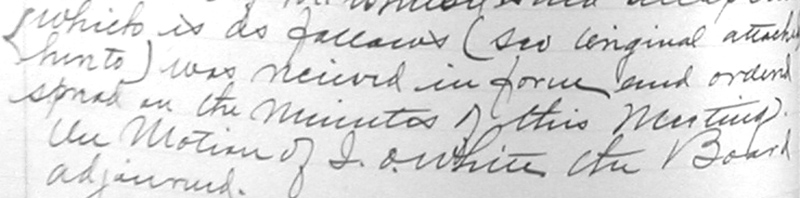 which is as follows (see original attached
hereto) was recieved in form and ordered
spread on the minutes of this Meeting.
On Motion of I. O. White the Board
adjourned.